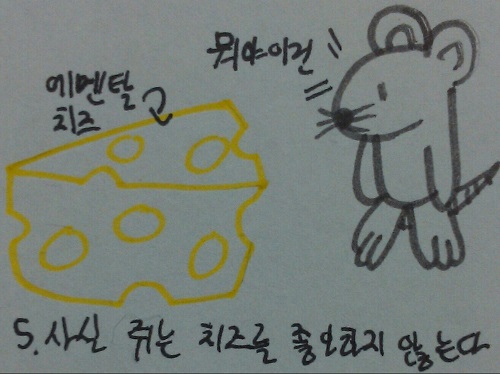 뭐야이건
에멘탈
치즈
5. 사실 쥐는 치즈를 좋아하지 않는다